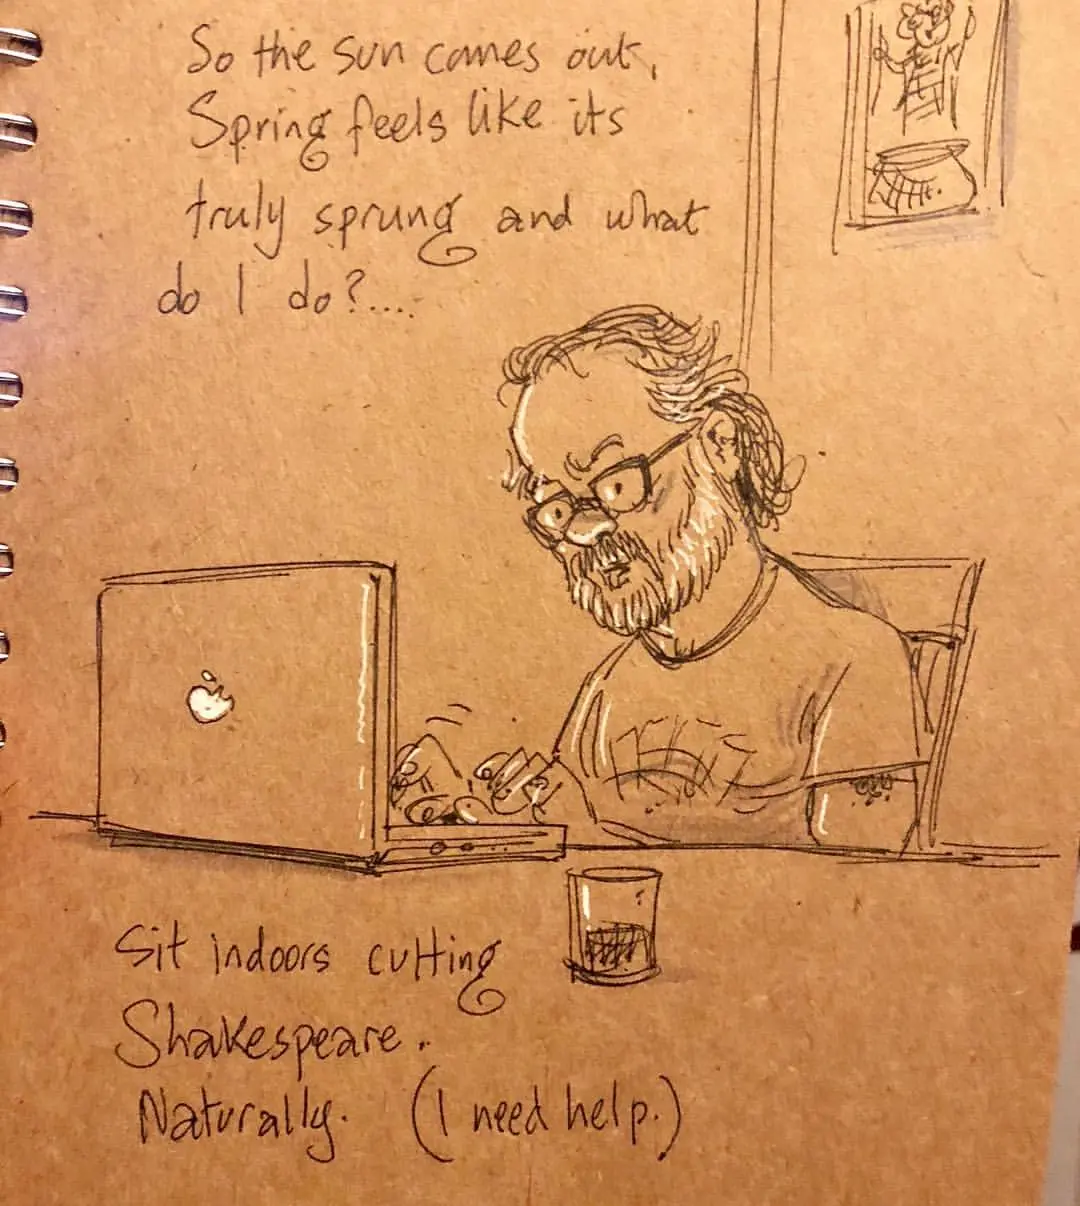 So the sun comes out,
Spring feels like its
truly sprung and what
do I do?....
Sit indoors cutting
Shakespeare.
Naturally. (I need help.)